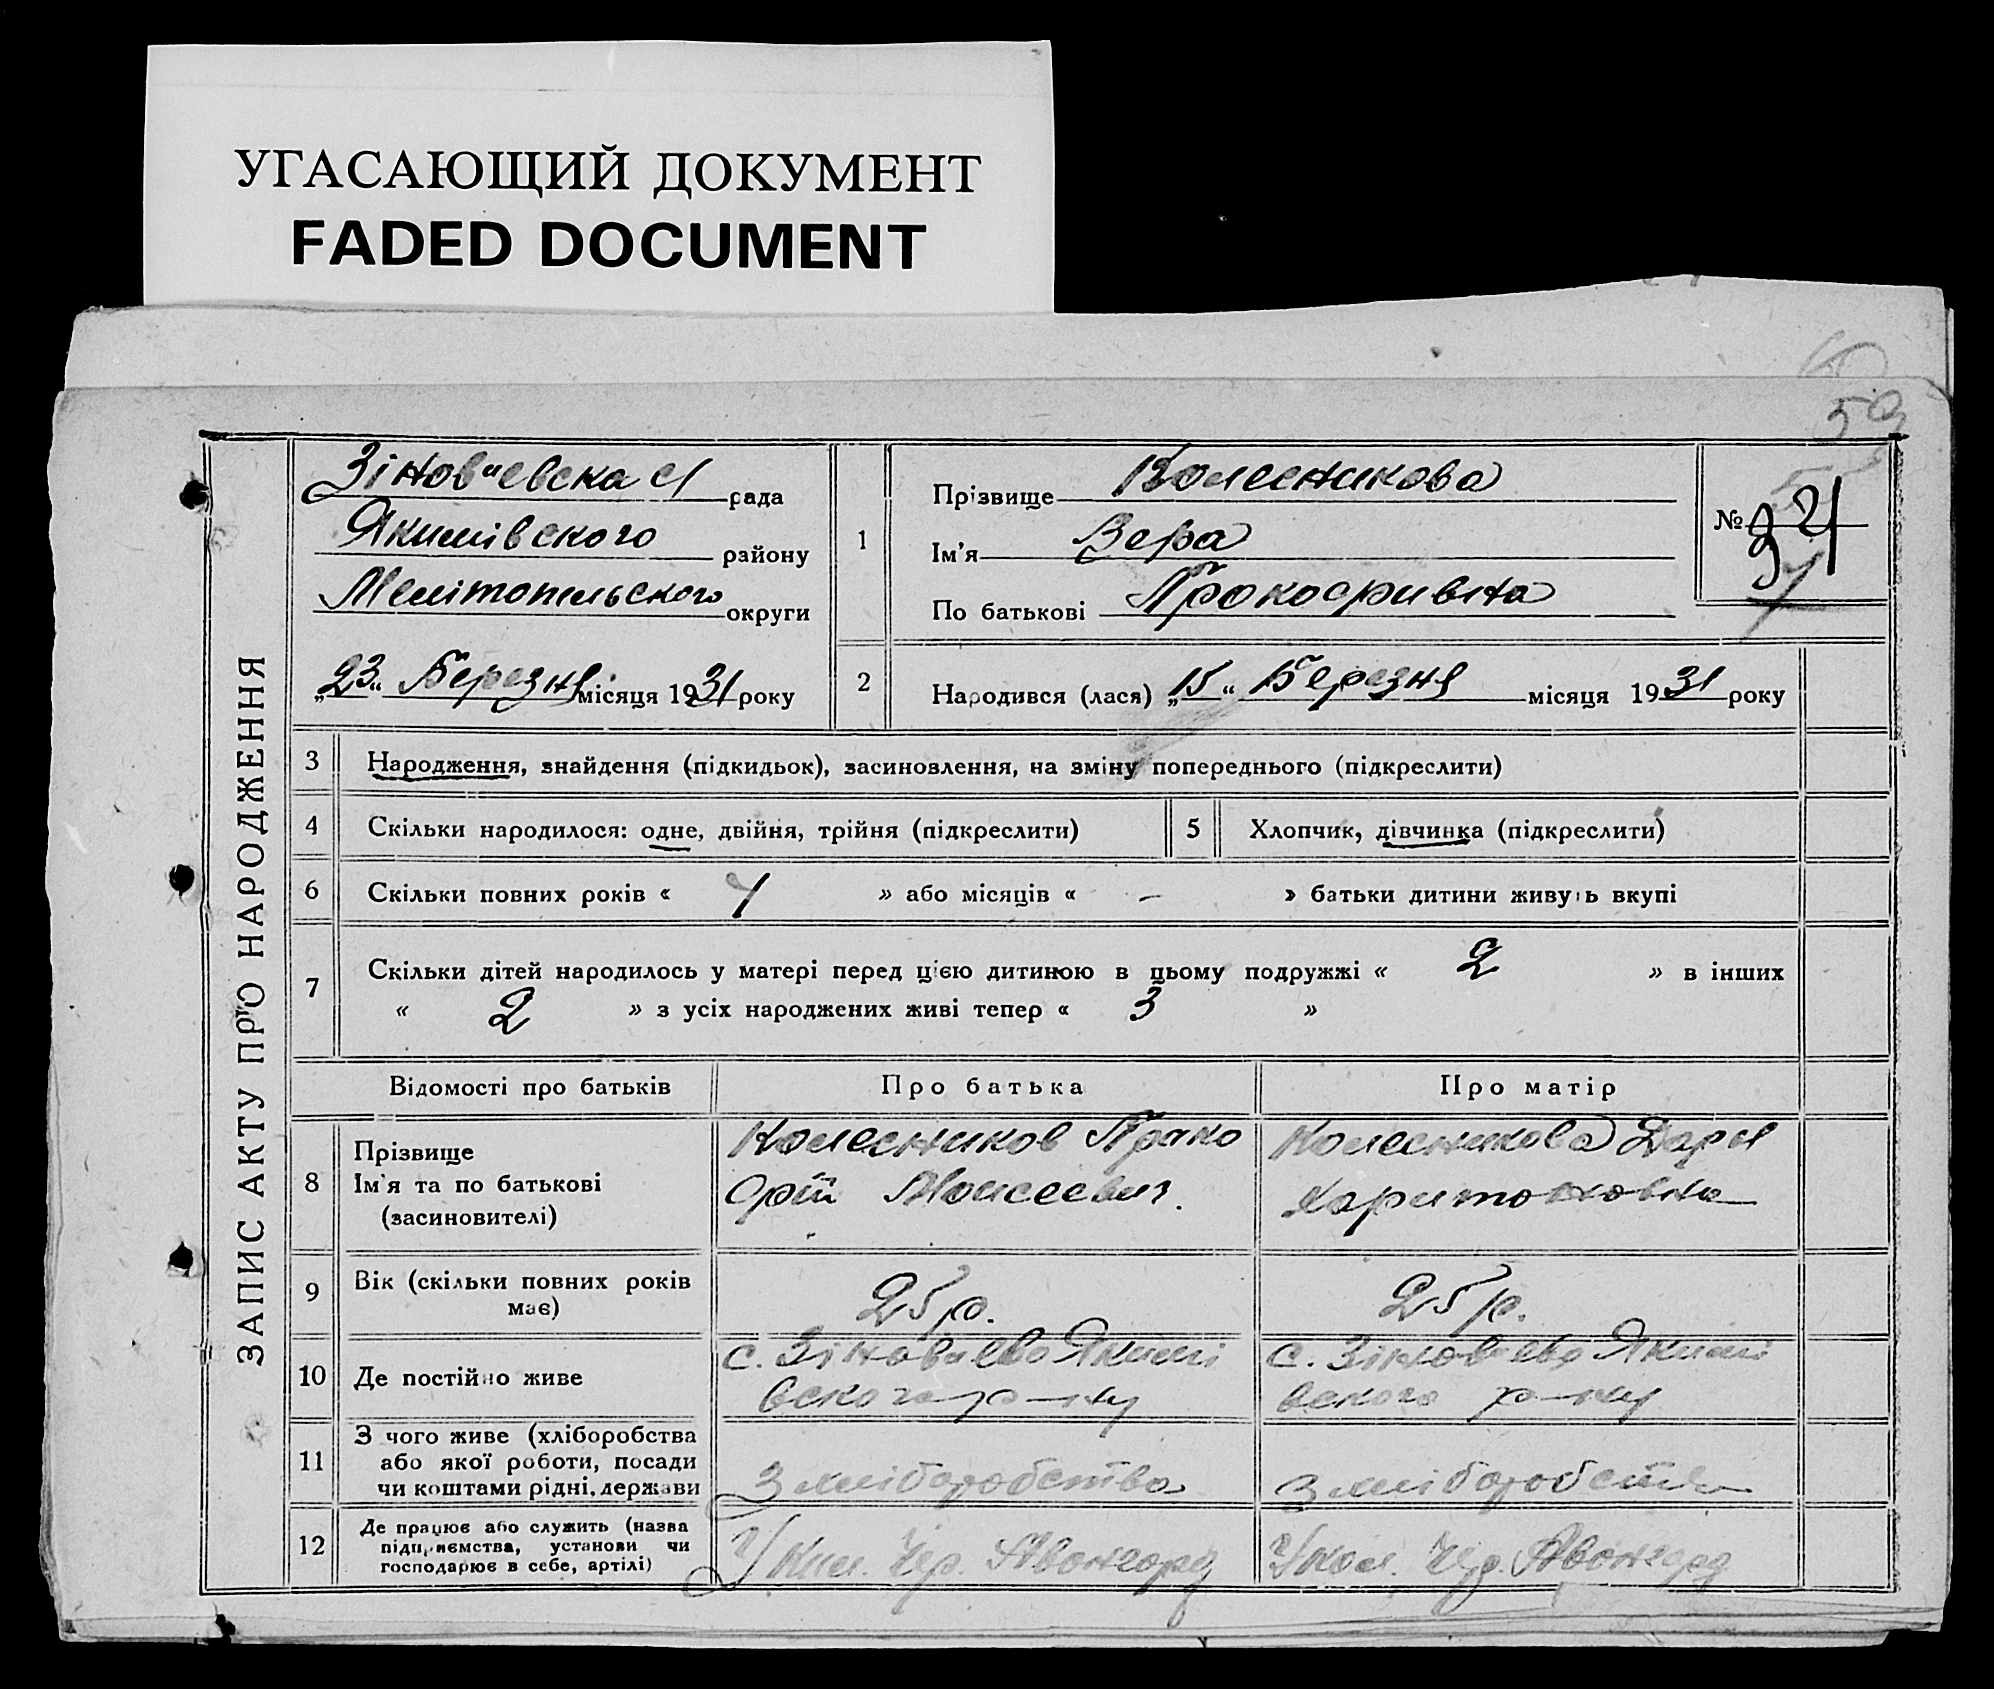 УГАСАЮЩИЙ ДОКУМЕНТ
FADED DOCUMENT
59
ЗАПИС АКТУ ПРО НАРОДЖЕННЯ
Зіновʼєвська рада
Якимівського району
Мелітопільського округи
„23“ Березня місяця 1931 року
1
Прізвище Колесникова
Ім'я Вера
По батькові Прокофривна
№
2
Народився (лася) „15“ Березня місяця 1931 року
3 Народження, знайдення (підкидьок), засиновлення, на зміну попереднього (підкреслити)
4 Скільки народилося: одне, двійня, трійня (підкреслити)
5 Хлопчик, дівчинка (підкреслити)
6 Скільки повних років « 4 » або місяців « – » батьки дитини живуть вкупі
7 Скільки дітей народилось у матері перед цією дитиною в цьому подружжі « 2 » в інших
« 2 » з усіх народжених живі тепер « 3 »
Відомості про батьків
Про батька
Про матір
8
Прізвище
Ім'я та по батькові
(засиновителі)
Колесников Проко
фрій Моисеевич.
Колесникова Даря
Харитоновна
9
Вік (скільки повних років
має)
25 р.
25 р.
10 Де постійно живе
с. Зіновʼєво Якимі
вського р-ну
с. Зіновʼєво Якимі
вського р-ну
11
З чого живе (хліборобства
або якої роботи, посади
чи коштами рідні, держави
З хліборобства
З хліборобства
12
Де працює або служить (назва
підприємства, установи чи
господарює в себе, артілі)
У кол. Чер. Авангард
У кол. Чер. Авангард